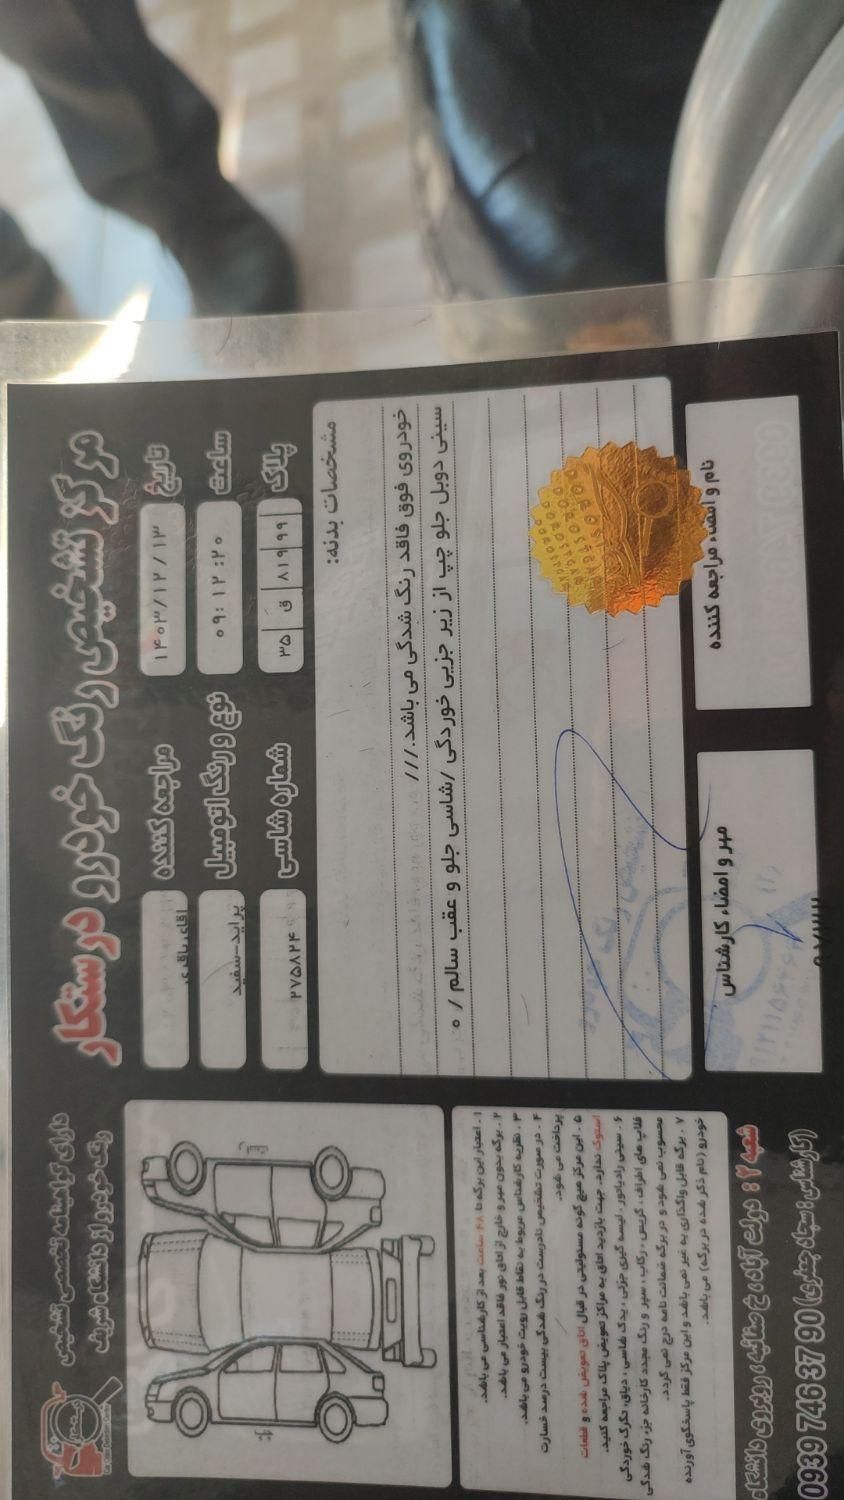 مرکز تشخیص رنگ خودرو درستکار
دارای گواهینامه تخصصی تشخیص
رنگ خودرو از دانشگاه شریف
تاریخ
۱۴۰۳/۱۲/۱۳
مراجعه کننده
آقای باقری
ساعت
۰۹:۱۲:۲۰
نوع و رنگ اتومبیل
پراید-سفید
پلاک
۳۵ ق ۸۱۹ ۹۹
شماره شاسی
۲۷۵۸۲۴
مشخصات بدنه:
خودروی فوق فاقد رنگ شدگی می باشد.///
سینی دوبل جلو چپ از زیر جزیی خوردگی /شاسی جلو و عقب سالم / ٥
نام و امضاء مراجعه کننده
مهر و امضاء کارشناس
۱. اعتبار این برگه تا ۴۸ ساعت بعد از کارشناسی می باشد.
۲. برگه بدون مهر و خارج از اتاق نور فاقد اعتبار می باشد.
۳. نظریه کارشناس مربوط به نقاط قابل رویت خودرو می باشد.
۴. در صورت تشخیص نادرست در رنگ شدگی بیست درصد خسارت
پرداخت می شود.
۵. این مرکز هیچ گونه مسئولیتی در قبال اتاق تعویض شده و قطعات
استوک ندارد. جهت بازدید اتاق به مراکز تعویض پلاک مراجعه کنید.
۶. سینی رادیاتور، لیسه گیری جزئی، یدک شاسی، دیاق، تگرگ خوردگی
قلاب های اطراف، گریس، رکاب، سپر و رنگ مجدد کارخانه جزء رنگ شدگی
محسوب نمی شود و در برگه ضمانت نامه درج نمی گردد.
۷. برگه قابل واگذاری به غیر نمی باشد و این مرکز فقط پاسخگوی آورنده
خودرو (نام ذکر شده در برگه) می باشد.
شعبه ۲: دولت آباد، خ صفائیه، روبروی دانشگاه
(کارشناس: سبحان جعفری) 0939 746 37 90